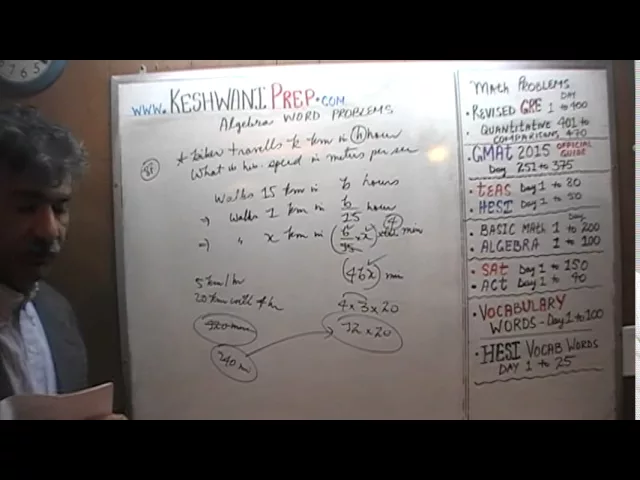 WWW.KESHWANIPREP.COM
Algebra WORD PROBLEMS
A biker travells k km in h hour
What is his speed in meters per sec
Walks 15 km in b hours
⇒ Walks 1 km in b/15 hour
⇒ " x km in (b/15 × x) min
4
(4bx) min
5 km/hr
20 km
4×3×20
12×20
240 m
Math PROBLEMS
DAY
• REVISED GRE 1 to 400
• QUANTITATIVE 401 to
COMPARISONS 470
• GMAT 2015 OFFICIAL GUIDE
Day 251 to 375
• TEAS DAY 1 to 80
• HESI DAY 1 to 50
Day
• BASIC Math 1 to 200
• ALGEBRA 1 to 100
• SAt DAY 1 to 150
• ACt DAY 1 to 40
• VOCABULARY
WORDS - Day 1 to 100
• HESI VOCAB WORDS
DAY 1 to 25